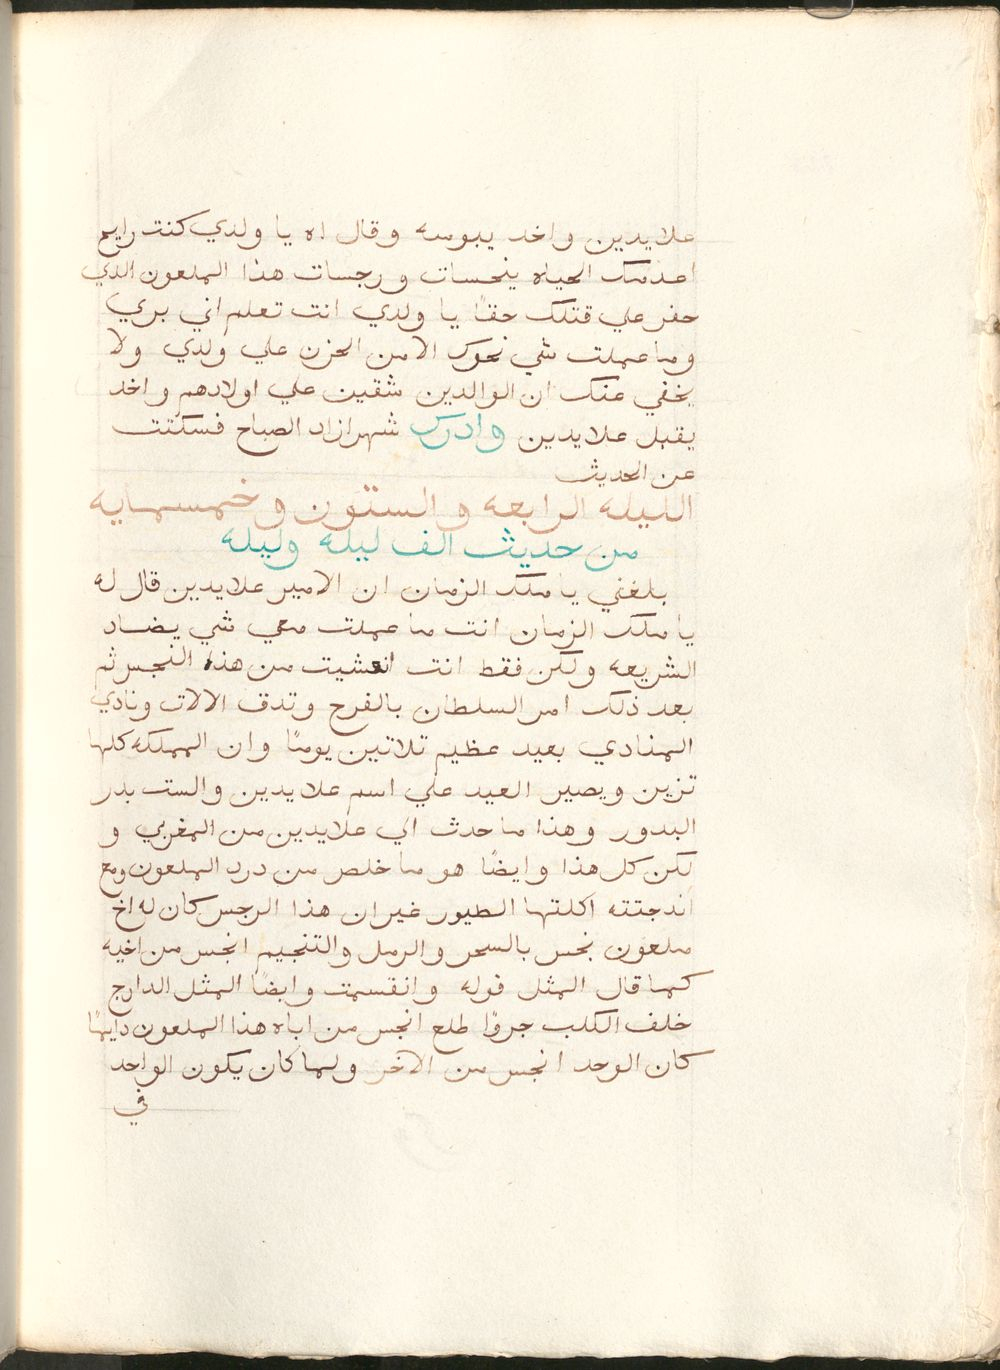 علايدين واخد يبوسه وقال اه يا ولدي كنت رايح
اعدمك الحياه ينحسات ورجسات هذا الملعون الدي
حفر علي قتلك حقًا يا ولدي انت تعلم اني بري
وما عملت شي نحوك الا من الحزن علي ولدي ولا
يخفي عنك ان الوالدين شقين علي اولادهم واخد
يقبل علايدين وادرك شهرازاد الصباح فسكتت
عن الحديث
الليله الرابعه والستون وخمسمايه
من حديث الف ليله وليله
بلغني يا ملك الزمان ان الامير علايدين قال له
يا ملك الزمان انت ما عملت معي شي يضاد
الشريعه ولكن فقط انت انعشيت من هذا النجس ثم
بعد ذلك امر السلطان بالفرح وتدق الالات ونادي
المنادي بعيد عظيم تلاتين يومًا وان المملكه كلها
تزين ويصير العيد علي اسم علايدين والست بدر
البدور وهذا ما حدث الي علايدين من المغربي و
لكن كل هذا وايضًا هو ما خلص من درد الملعون ومع
اندجتته اكلتها الطيور غير ان هذا الرجس كان له اخ
ملعون نجس بالسحر والرمل والتنجيم انجس من اخيه
كما قال المثل فوله وانقسمت وايضًا المثل الدارج
خلف الكلب جروًا طلع انجس من اباه هذا الملعون دايمًا
كان الوحد انجس من الاخر ولما كان يكون الواحد
في